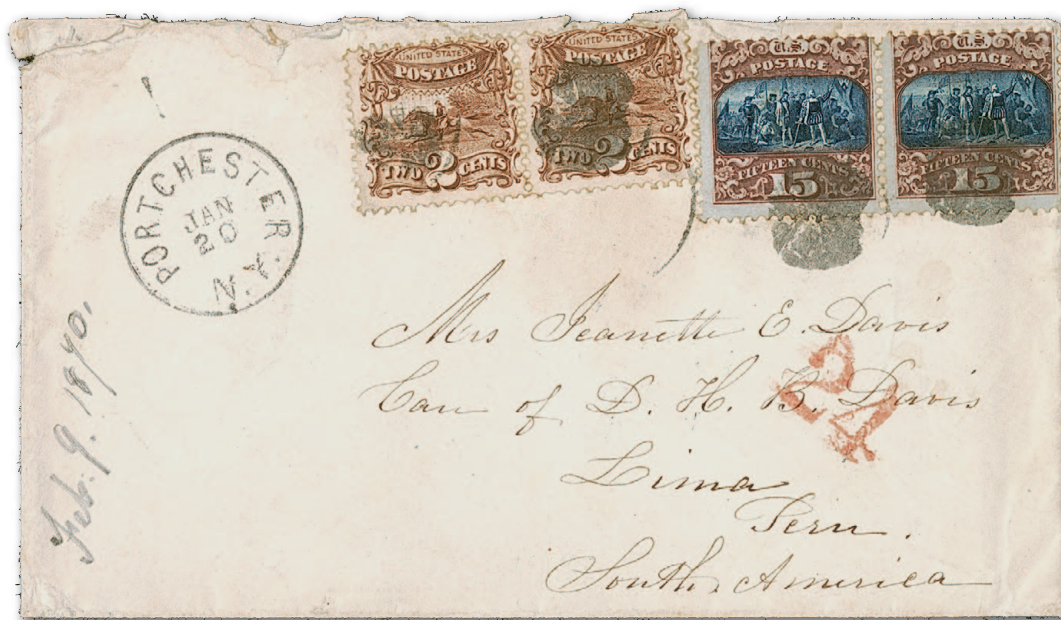 UNITED STATES
POSTAGE
TWO 2 CENTS
UNITED STATES
POSTAGE
TWO 2 CENTS
U.S.
POSTAGE
FIFTEEN CENTS
15
U.S.
POSTAGE
FIFTEEN CENTS
15
PORTCHESTER. N.Y.
JAN
20
Feb. 9. 1870.
Mrs Jeanette E. Davis
Care of D. H. B. Davis
Lima
Peru.
South America
24